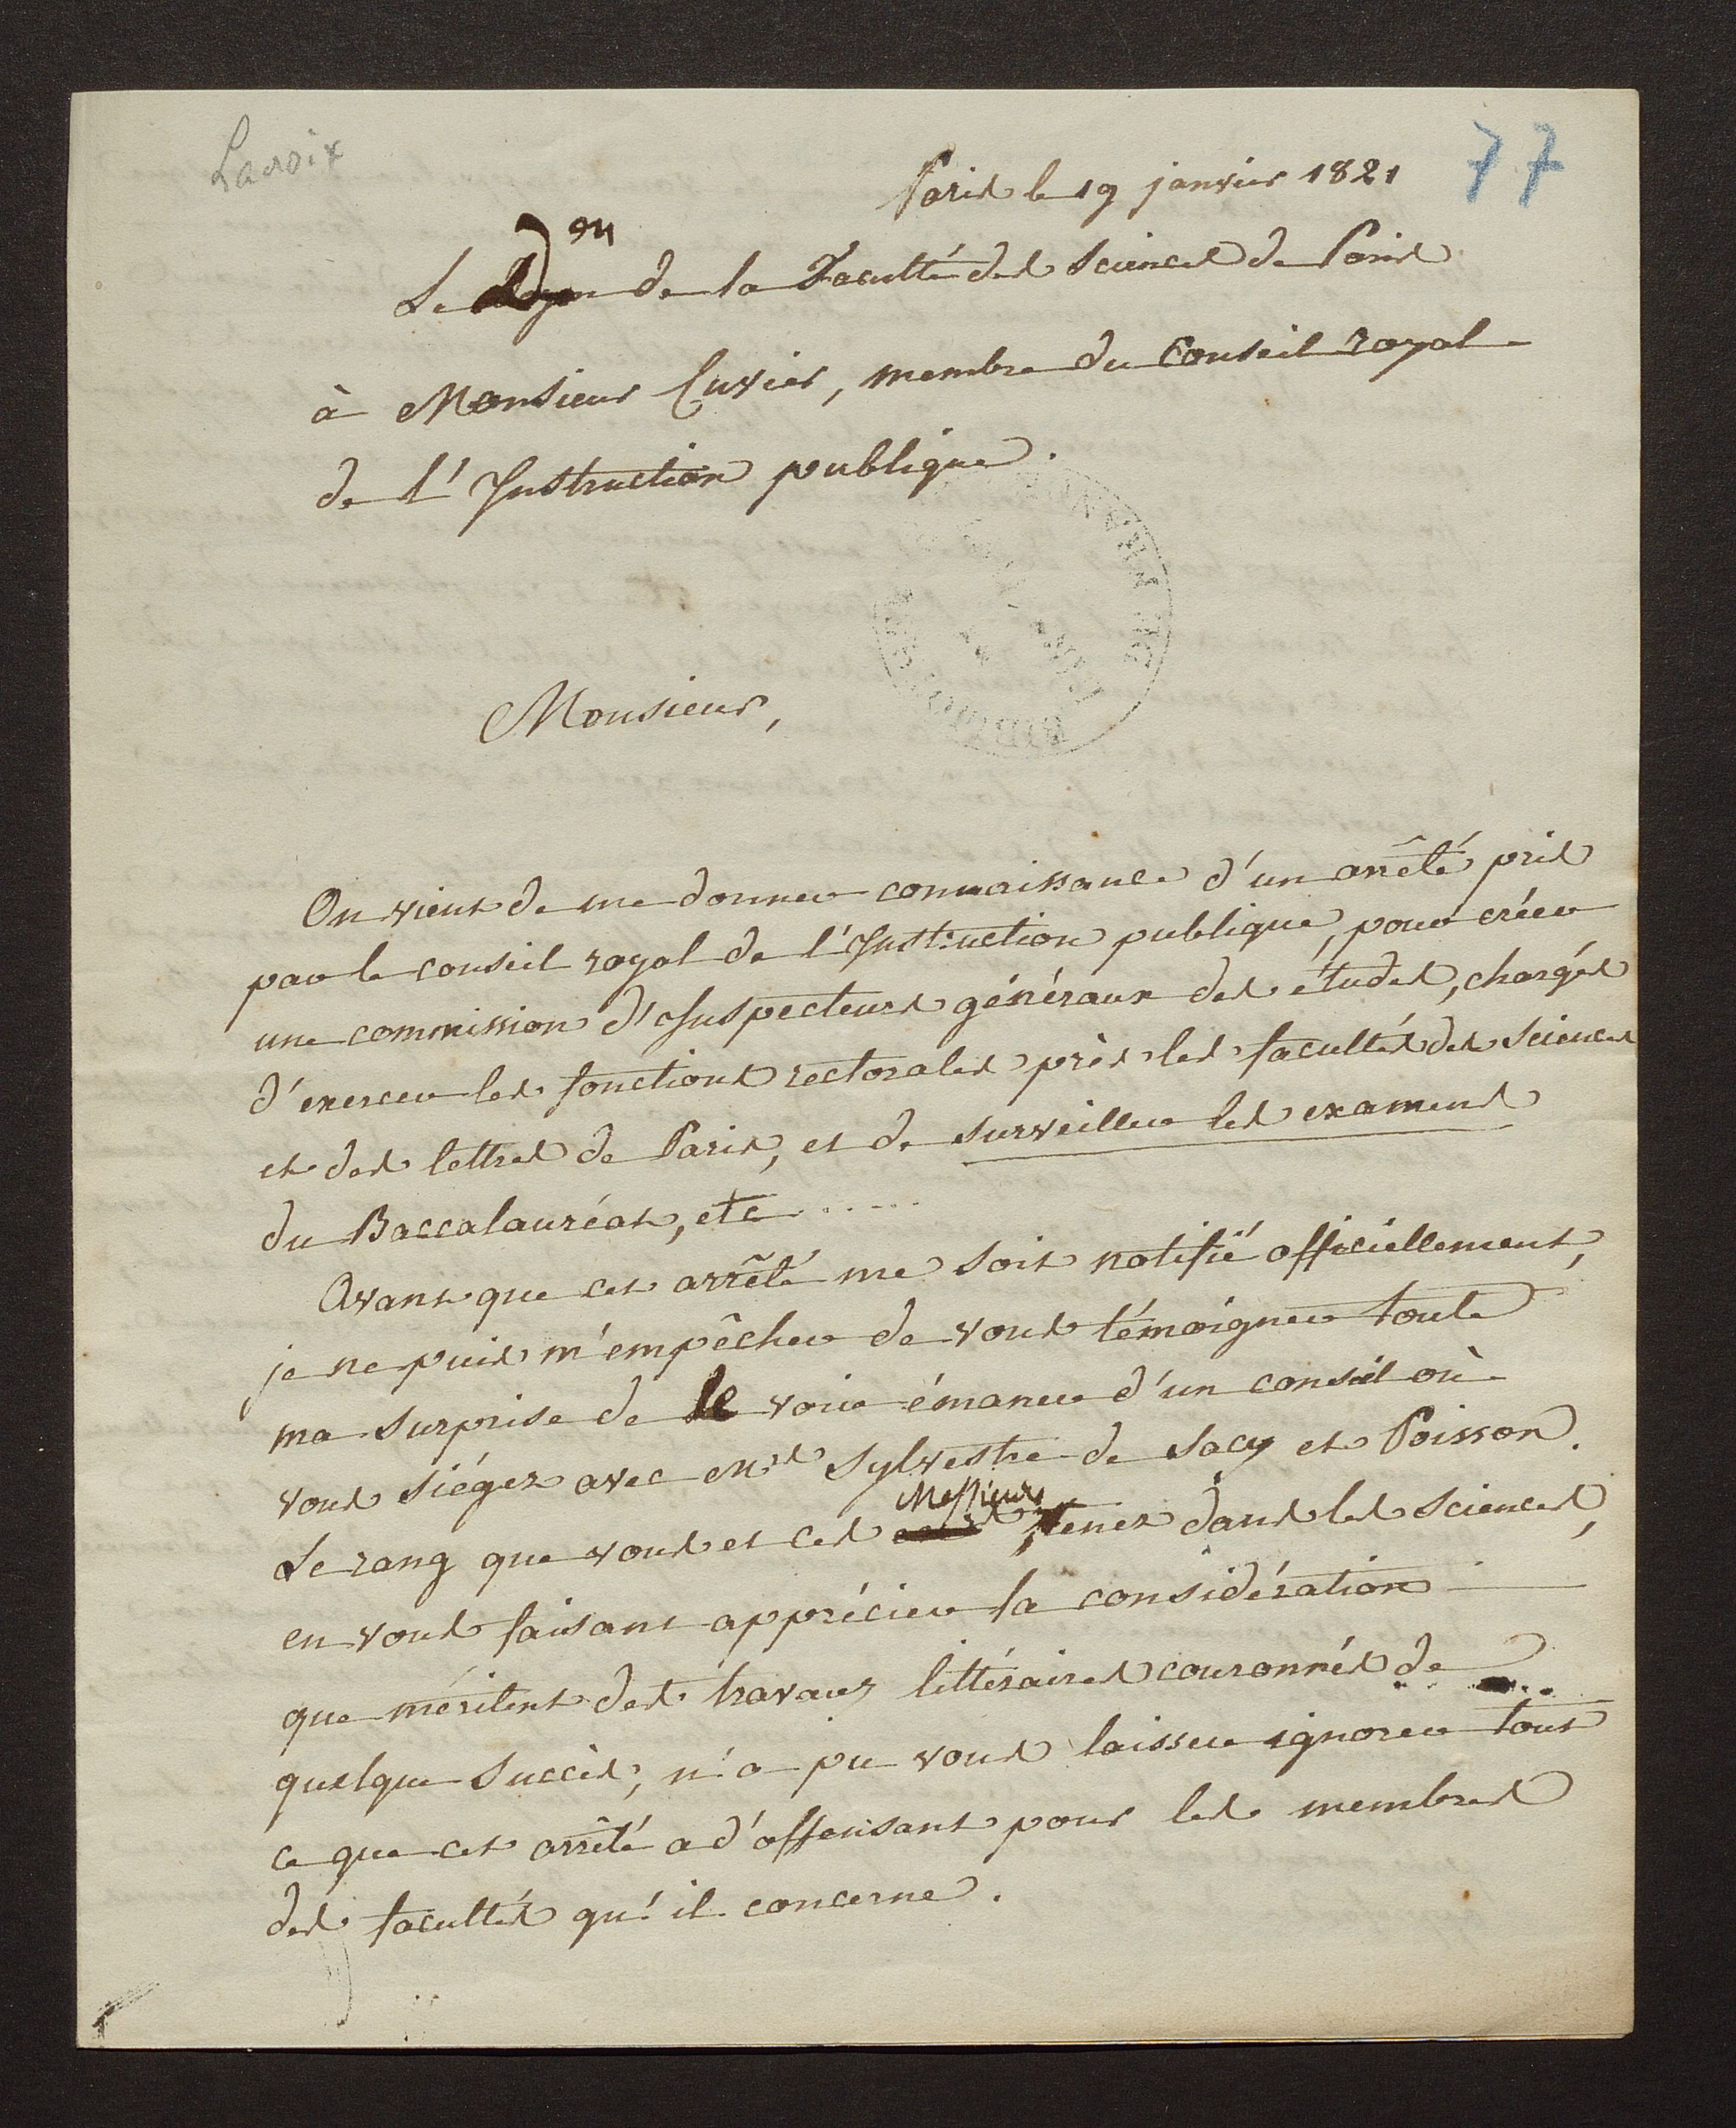 Lacroix
77
Paris le 19 janvier 1821
Le Doyen de la Faculté des Sciences de Paris
à Monsieur Cuvier, membre du Conseil royal
de l'Instruction publique.
Monsieur,
On vient de me donner connaissance d'un arrêté pris
par le conseil royal de l'Instruction publique, pour créer
une commission d'Inspecteurs généraux des études, chargés
d'exercer les fonctions rectorales près les facultés des Sciences
et des lettres de Paris, et de surveiller les examens
du Baccalauréat, etc......
Avant que cet arrêté me soit notifié officiellement,
je ne puis m'empêcher de vous témoigner toute
ma surprise de le voir émaner d'un conseil où
vous siégez avec Mrs Sylvestre de Sacy et Poisson.
Le rang que vous et ces Messieurs tenez dans les Sciences,
en vous faisant apprécier la considération
que méritent des travaux littéraires couronnés de
quelque succès, n'a pu vous laisser ignorer tout
ce que cet arrêté a d'offensant pour les membres
des facultés qu'il concerne.